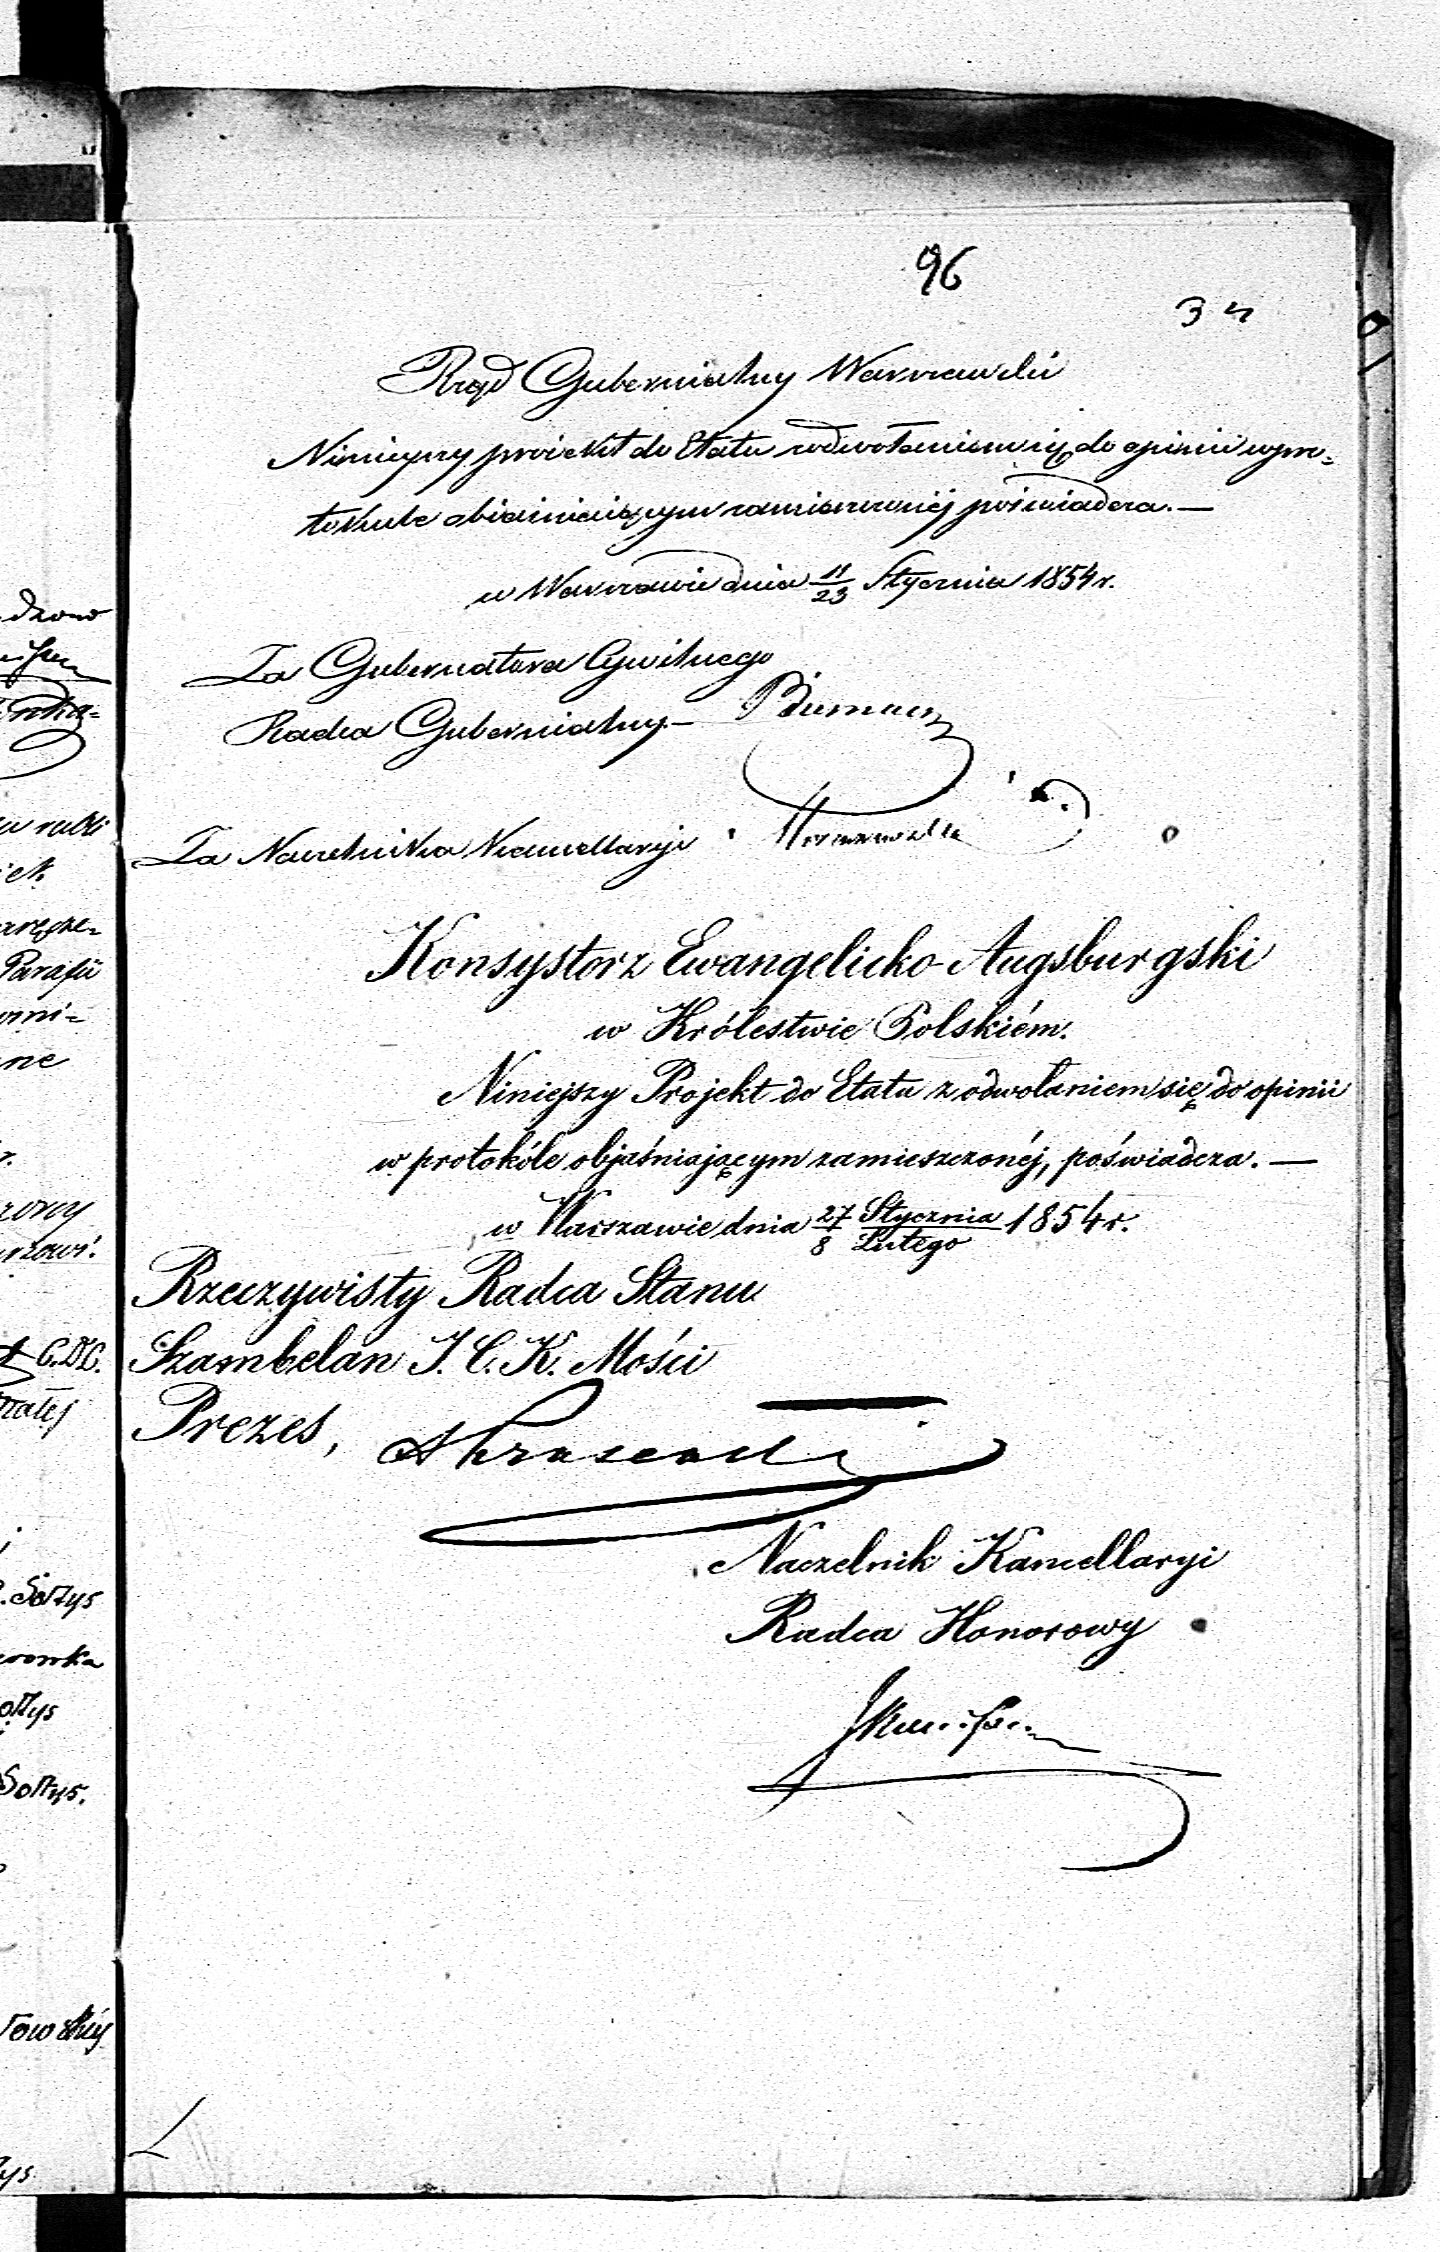 96
34
Rząd Gubernialny Warszawski
Niniejszy projekt do Etatu z odwołaniem się do opinii w pro=
tokule obiaśniaiącym zamieszczonéj poświadcza. —
w Warszawie dnia 11/23 Stycznia 1854 r.
Za Gubernatora Cywilnego
Radca Gubernialny —
Za Naczelnika Kancellaryi
Konsystorz Ewangelicko-Augsburgski
w Królestwie Polskiém.
Niniejszy Projekt do Etatu z odwołaniem się do opinii
w protokóle objaśniającym zamieszczonéj, poświadcza. —
w Warszawie dnia 27 Stycznia/8 Lutego 1854 r.
Rzeczywisty Radca Stanu
Szambelan J. C. K. Mości
Prezes,
Naczelnik Kancellaryi
Radca Honorowy